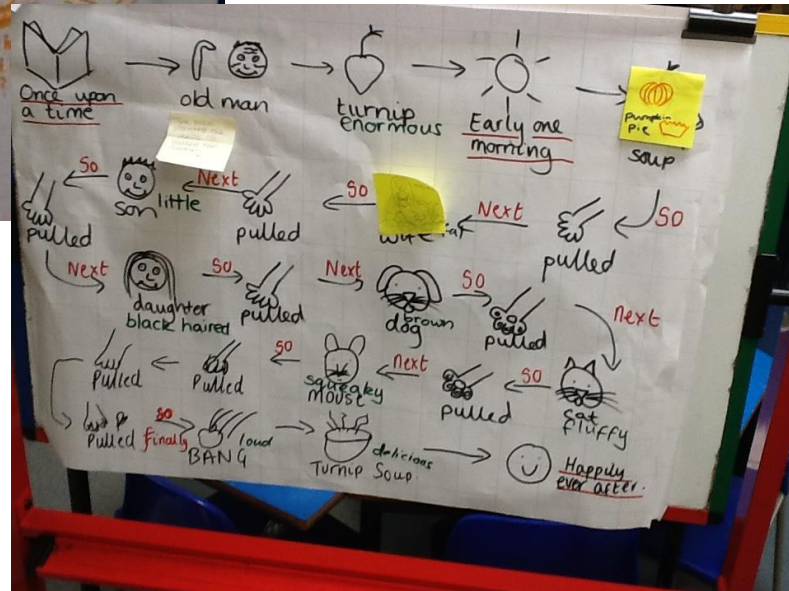 Once upon
a time
old man
turnip
enormous
Early one
morning
pumpkin
pie
soup
So
pulled
Next
wife
So
pulled
Next
son little
So
pulled
Next
daughter
black haired
So
pulled
Next
dog brown
So
pulled
next
cat
fluffy
So
pulled
next
squeaky
mouse
So
pulled
pulled
pulled
so
finally
BANG loud
Turnip Soup delicious
Happily
ever after.